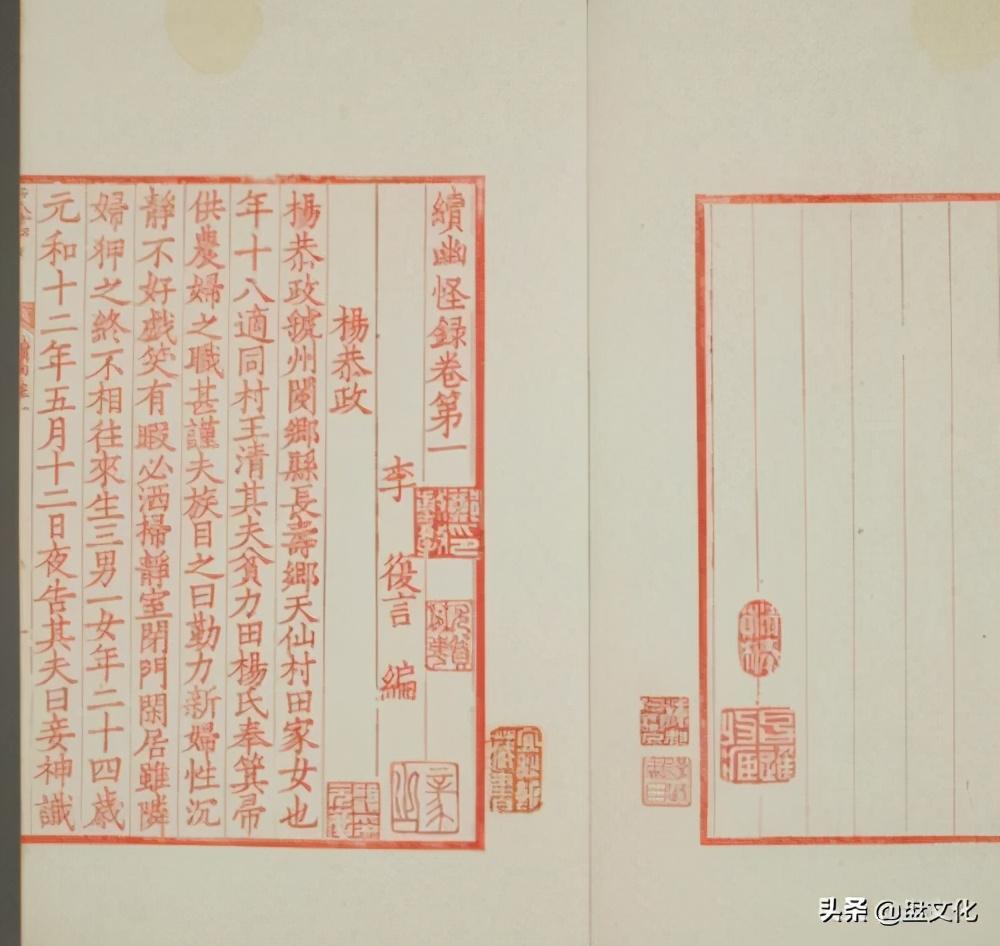 續幽怪録卷第一
李復言編
楊恭政
楊恭政虢州閿鄉縣長壽鄉天仙村田家女也
年十八適同村王清其夫貧力田楊氏奉箕帚
供農婦之職甚謹夫族目之曰勤力新婦性沉
靜不好戲笑有暇必洒掃靜室閉門閑居雖隣
婦狎之終不相往來生三男一女年二十四歲
元和十二年五月十二日夜告其夫曰妾神識
头条 @盘文化